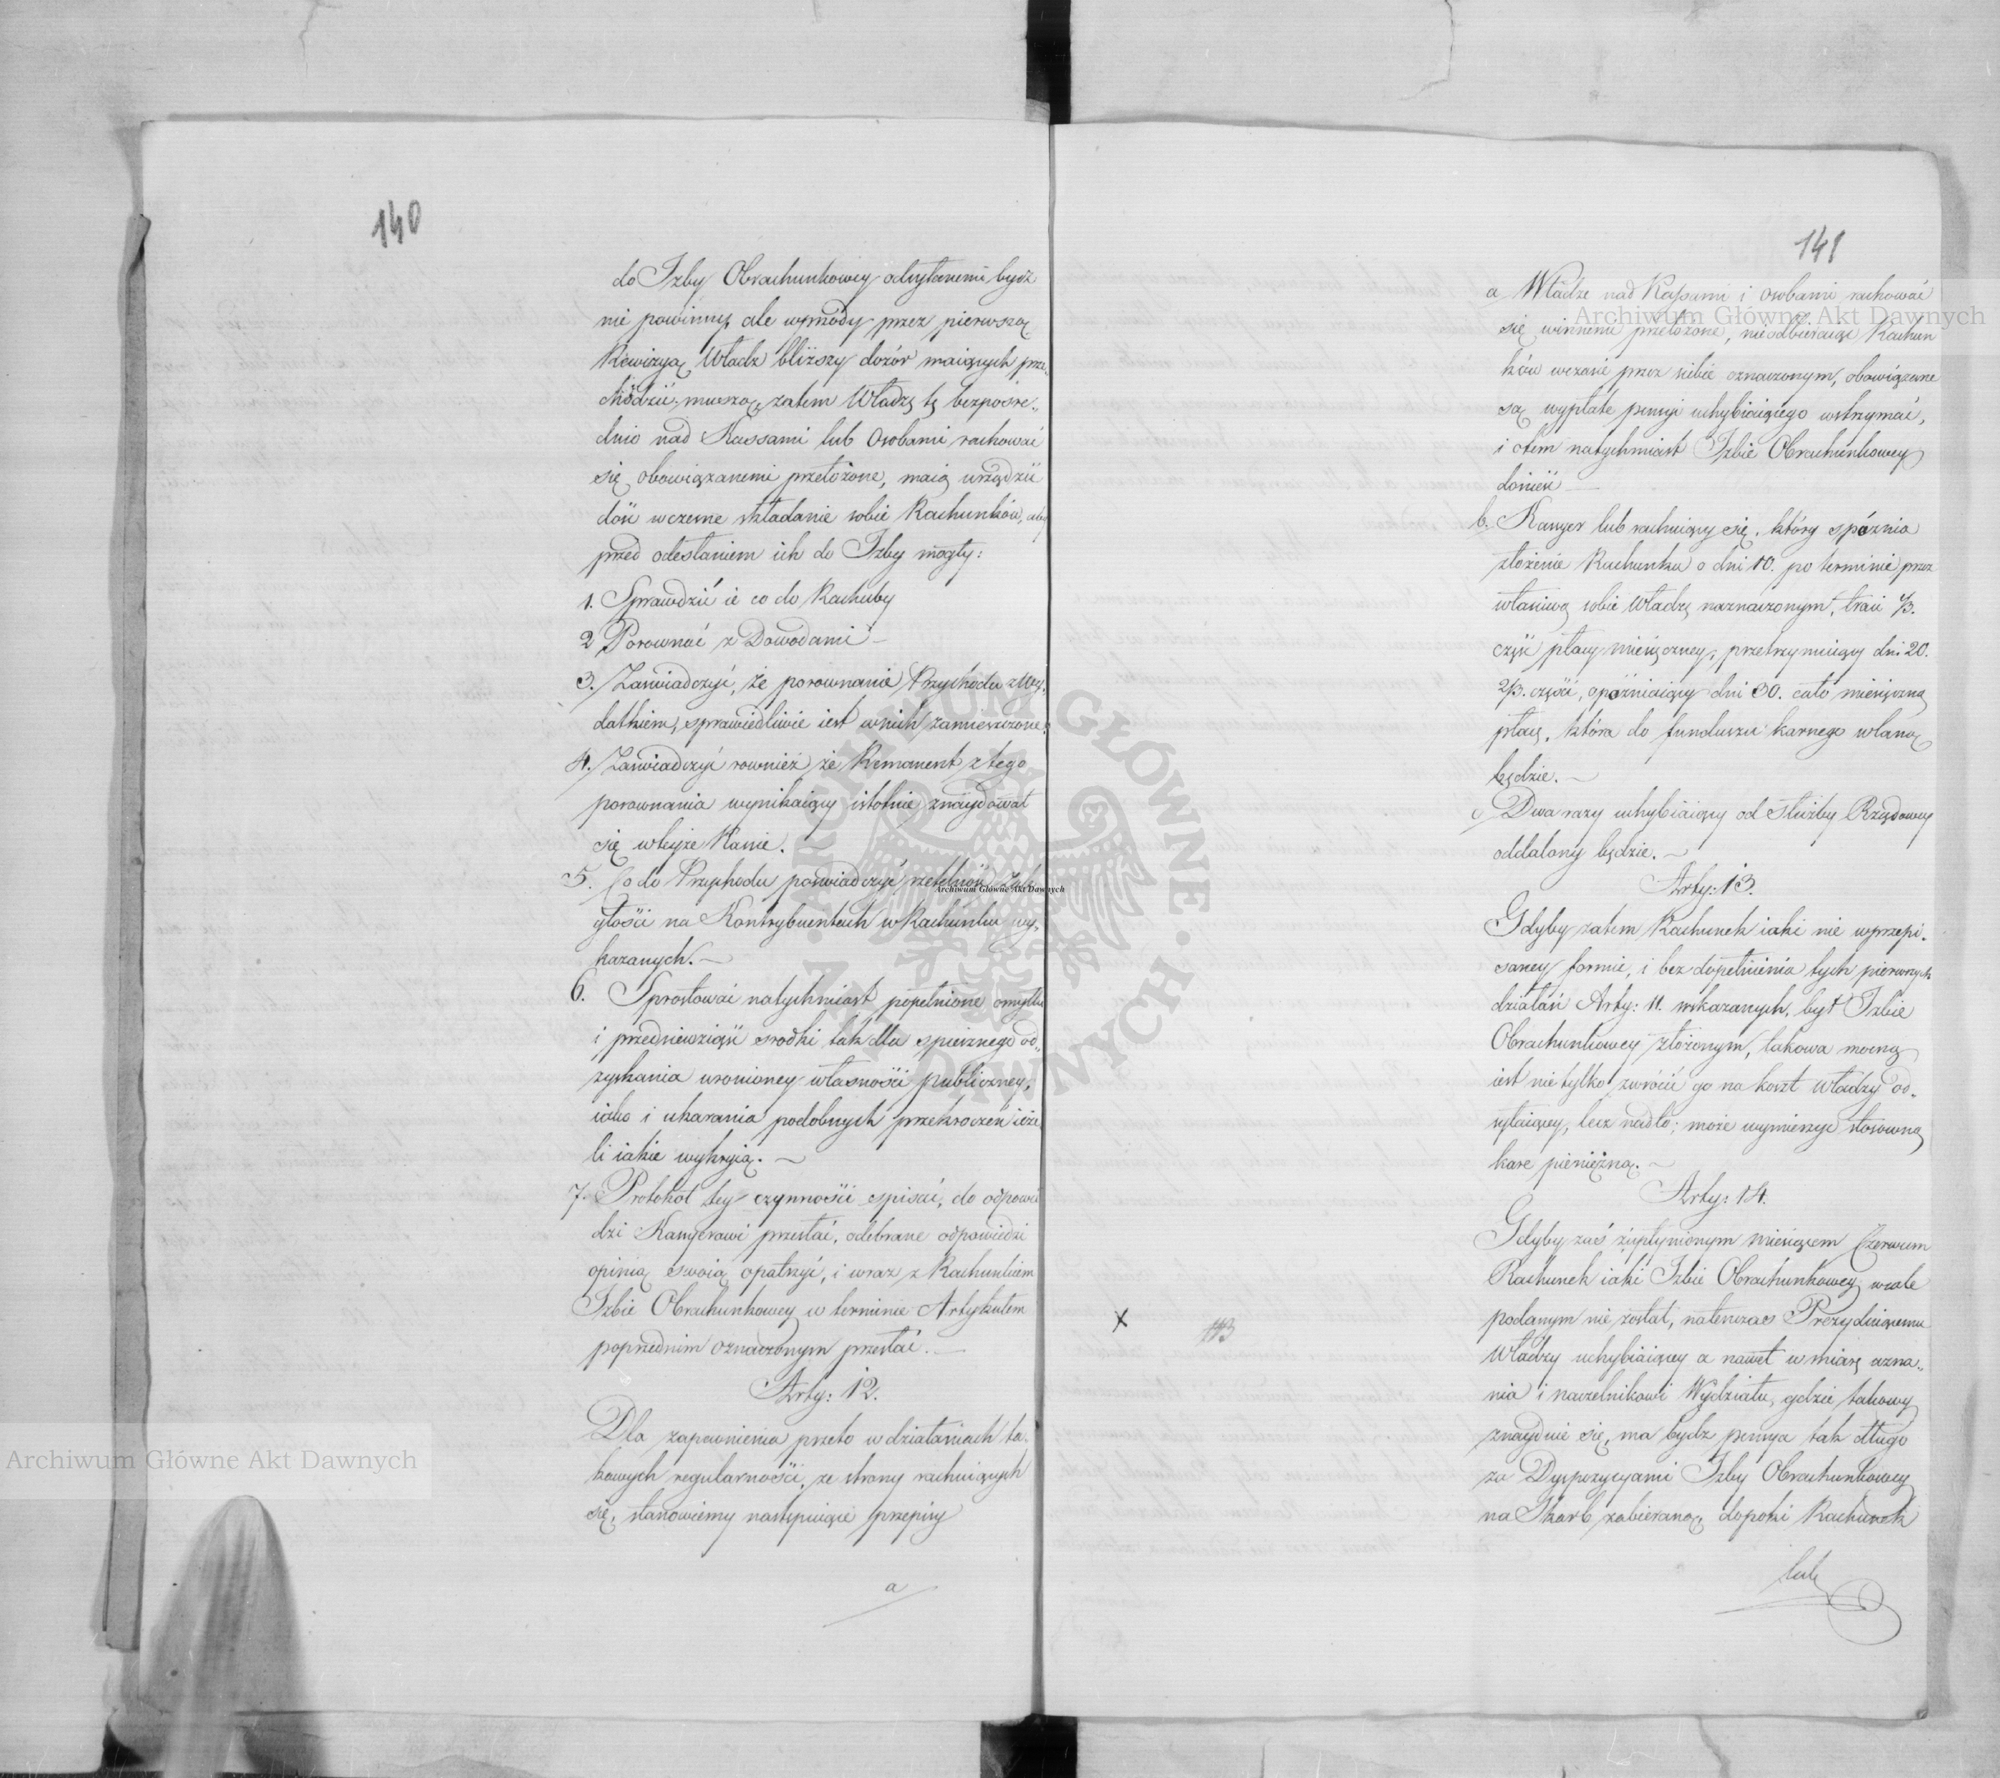 140
do Izby Obrachunkowey odsyłanemi bydź
nie powinny, ale wprzódy przez pierwszą
Rewizyą Władz bliższy dozór maiących prze„
chodzić muszą, zatem Władze te bezpośre„
dnio nad Kassami lub Osobami rachować
się obowiązanemi przełożone, maią urządzić
dość wczesne składanie sobie Rachunków, aby
przed odesłaniem ich do Izby mogły:
1. Sprawdzić ie co do Rachuby
2 Porownać z Dowodami —
3. Zaświadczyć, że porownanie Przychodu z Wy„
datkiem, sprawiedliwie iest w nich zamieszczone.
4. Zaświadczyć rownież że Remanent z tego
porownania wynikaiący istotnie znaydował
się w teyże Kassie.
5. Co do Przychodu poświadczyć rzetelność Zale„
głości na Kontrybuentach w Rachunku wy„
kazanych. —
6. Sprostować natychmiast popełnione omyłki
i przedsięwziąść środki tak dla spiesznego od„
zyskania uronioney własności publiczney,
iako i ukarania podobnych przekroczeń ieże„
li iakie wykryią. —
7. Protokoł tey czynności spisać, do odpowie„
dzi Kassyerowi przesłać, odebrane odpowiedzi
opinią swoią opatrzyć, i wraz z Rachunkiem
Izbie Obrachunkowey w terminie Artykułem
poprzednim oznaczonym przesłać. —
Arty: 12.
Dla zapewnienia przeto w działaniach ta„
kowych regularności, ze strony rachuiących
się, stanowiemy następuiące przepisy
a
141
a Władze nad Kassami i osobami rachować
się winnemi przełożone, nieodbieraiąc Rachun
ków w czasie przez siebie oznaczonym, obowiązane
są wypłatę pensyi uchybiaiącego wstrzymać,
i o tem natychmiast Izbie Obrachunkowey
donieść —
b. Kassyer lub rachuiący się, który spóźnia
złożenie Rachunku o dni 10. po terminie przez
właściwą sobie Władzę naznaczonym, traci 1/3.
część płacy miesięczney, przetrzymuiący dni 20.
2/3. części, opóźniaiący dni 30. całą miesięczną
płacę, która do funduszu karnego wlaną
będzie. —
c Dwa razy uchybiaiący od służby Rządowey
oddalony będzie. —
Arty: 13.
Gdyby zatem Rachunek iaki nie w przepi„
saney formie, i bez dopełnienia tych pierwszych
działań Arty: 11. wskazanych, był Izbie
Obrachunkowey złożonym, takowa mocną
iest nie tylko zwrócić go na koszt Władzy od„
syłaiącey, lecz nadto; może wymierzyć stosowną
karę pieniężną. —
Arty: 14.
Gdyby zaś z upłynionym miesiącem Czerwcem
Rachunek iaki Izbie Obrachunkowey wcale
podanym nie został, natenczas Prezyduiącemu
Władzy uchybiaiącey a nawet w miarę uzna„
nia i naczelnikowi Wydziału, gdzie takowy
znayduie się, ma bydź pensya tak długo
za Dyspozycyami Izby Obrachunkowey
na Skarb zabieraną, dopóki Rachunek
X
113
Archiwum Główne Akt Dawnych
Archiwum Główne Akt Dawnych
Archiwum Główne Akt Dawnych
ARCHIWUM GŁÓWNE · AKT DAWNYCH ·